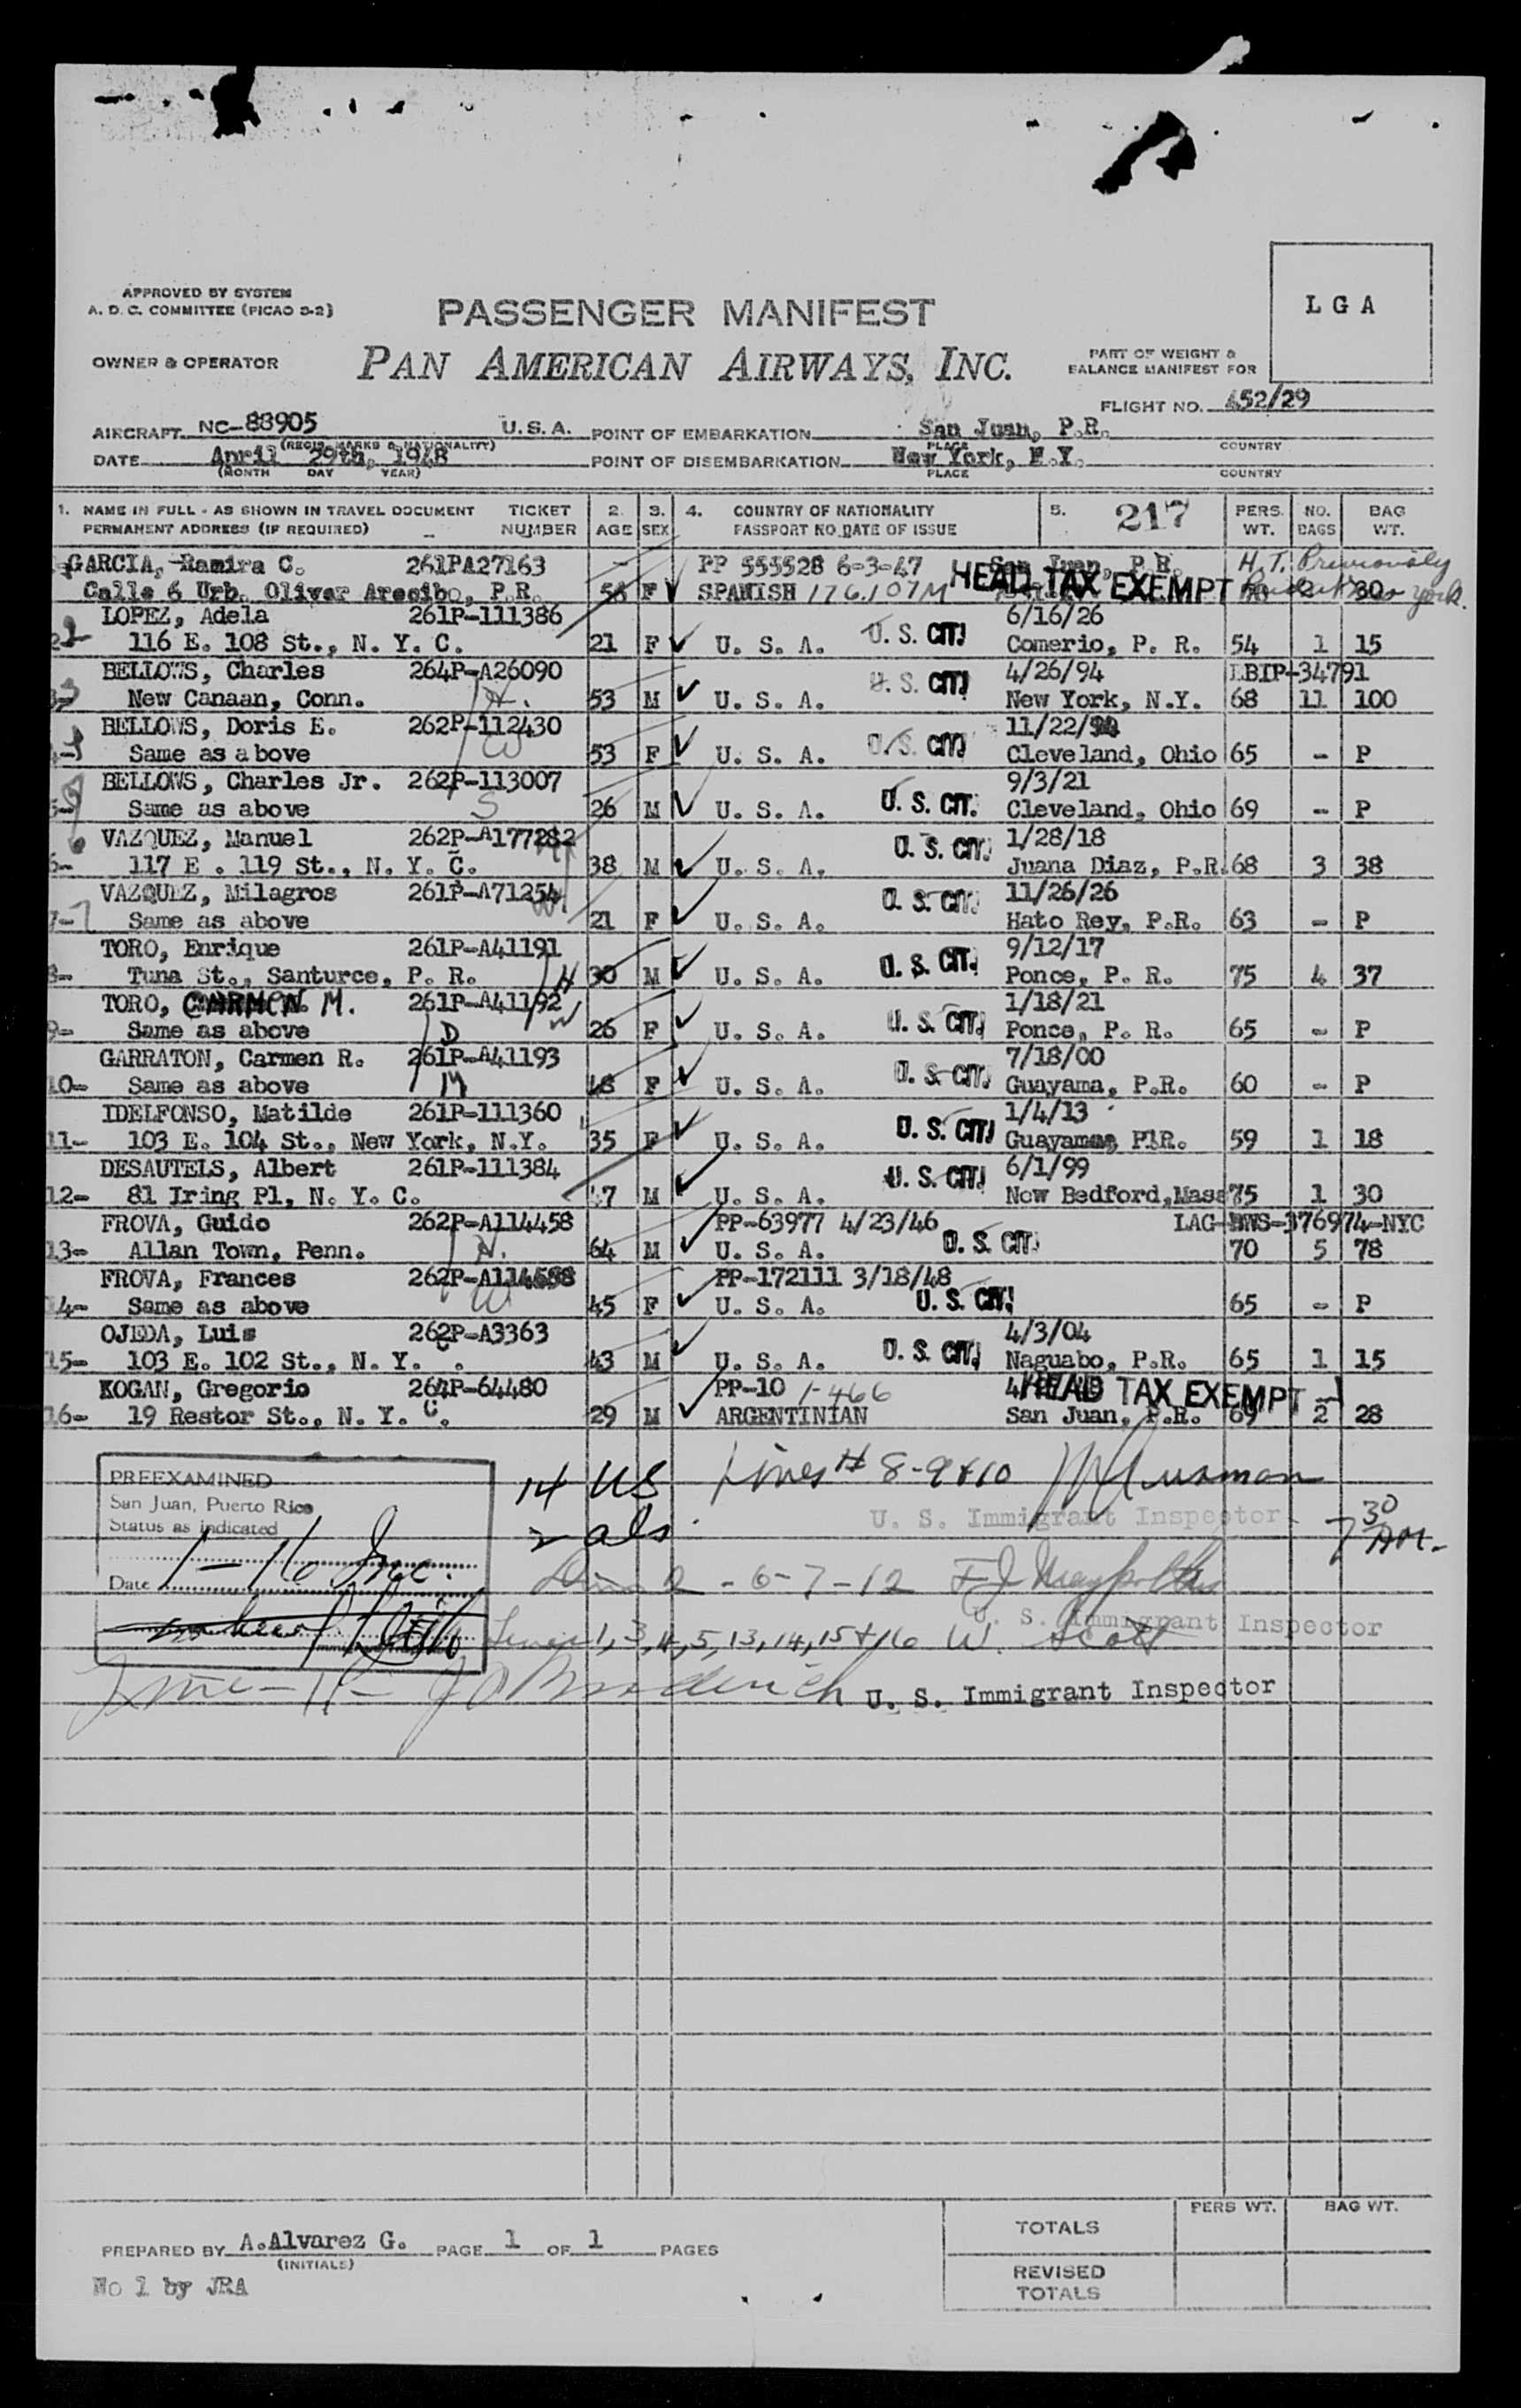 APPROVED BY SYSTEM
A. D. C. COMMITTEE (PICAO S-2)
LGA
PASSENGER MANIFEST
OWNER & OPERATOR
PAN AMERICAN AIRWAYS, INC.
PART OF WEIGHT &
BALANCE MANIFEST FOR
FLIGHT NO. 452/29
AIRCRAFT NC-88905 U.S.A. POINT OF EMBARKATION San Juan, P.R.
(REGIS. MARKS & NATIONALITY) PLACE COUNTRY
DATE April 29th, 1948 POINT OF DISEMBARKATION New York, N.Y.
(MONTH DAY YEAR) PLACE COUNTRY
1. NAME IN FULL - AS SHOWN IN TRAVEL DOCUMENT TICKET 2. 3. 4. COUNTRY OF NATIONALITY 5. 217 PERS. NO. BAG
PERMANENT ADDRESS (IF REQUIRED) NUMBER AGE SEX PASSPORT NO. DATE OF ISSUE WT. BAGS WT.
GARCIA, Ramira C. 261PA27163 PP 555528 6-3-47 San Juan, P.R. H.T. Previously
Calle 6 Urb. Oliver Arecibo, P.R. 58 F SPANISH 176.107M HEAD TAX EXEMPT 2 30 York.
LOPEZ, Adela 261P-111386 6/16/26
2- 116 E. 108 St., N. Y. C. 21 F U. S. A. U. S. CIT. Comerio, P. R. 54 1 15
BELLOWS, Charles 264P-A26090 4/26/94 LBIP-34791
3- New Canaan, Conn. H. 53 M U. S. A. U. S. CIT. New York, N.Y. 68 11 100
BELLOWS, Doris E. 262P-112430 11/22/94
4- Same as above W 53 F U. S. A. U. S. CIT. Cleveland, Ohio 65 - P
BELLOWS, Charles Jr. 262P-113007 9/3/21
5- Same as above S 26 M U. S. A. U. S. CIT. Cleveland, Ohio 69 - P
VAZQUEZ, Manuel 262P-A177282 1/28/18
6- 117 E. 119 St., N. Y. C. H 38 M U. S. A. U. S. CIT. Juana Diaz, P.R. 68 3 38
VAZQUEZ, Milagros 261P-A71254 11/26/26
7- Same as above W. 21 F U. S. A. U. S. CIT. Hato Rey, P.R. 63 - P
TORO, Enrique 261P-A41191 9/12/17
8- Tuna St., Santurce, P. R. H 30 M U. S. A. U. S. CIT. Ponce, P. R. 75 4 37
TORO, CARMEN M. 261P-A41192 1/18/21
9- Same as above D W 26 F U. S. A. U. S. CIT. Ponce, P. R. 65 - P
GARRATON, Carmen R. 261P-A41193 7/18/00
10- Same as above M 48 F U. S. A. U. S. CIT. Guayama, P.R. 60 - P
IDELFONSO, Matilde 261P-111360 1/4/13
11- 103 E. 104 St., New York, N.Y. 35 F U. S. A. U. S. CIT. Guayama, P.R. 59 1 18
DESAUTELS, Albert 261P-111384 6/1/99
12- 81 Iring Pl, N. Y. C. 47 M U. S. A. U. S. CIT. New Bedford, Mass 75 1 30
FROVA, Guido 262P-A114458 PP-63977 4/23/46 LAG-BWS-376974-NYC
13- Allan Town, Penn. H. 64 M U. S. A. U. S. CIT. 70 5 78
FROVA, Frances 262P-A114658 PP-172111 3/18/48
14- Same as above W 45 F U. S. A. U. S. CIT. 65 - P
OJEDA, Luis 262P-A3363 4/3/04
15- 103 E. 102 St., N. Y. C. 43 M U. S. A. U. S. CIT. Naguabo, P.R. 65 1 15
KOGAN, Gregorio 264P-64480 PP-10 1-466 HEAD TAX EXEMPT
16- 19 Restor St., N. Y. C. 29 M ARGENTINIAN San Juan, P.R. 69 2 28
PREEXAMINED
San Juan, Puerto Rico
Status as indicated
1-16 Inc.
Date
14 US
2 als.
Lines # 8-9&10
U. S. Immigrant Inspector
7 30 AM.
2 - 6-7-12
U. S. Immigrant Inspector
Lines 1, 3, 4, 5, 13, 14, 15 & 16 W. Scott
Line - 11 - Broderick U. S. Immigrant Inspector
PERS WT. BAG WT.
TOTALS
REVISED
TOTALS
PREPARED BY A.Alvarez G. PAGE 1 OF 1 PAGES
(INITIALS)
No 1 by JRA